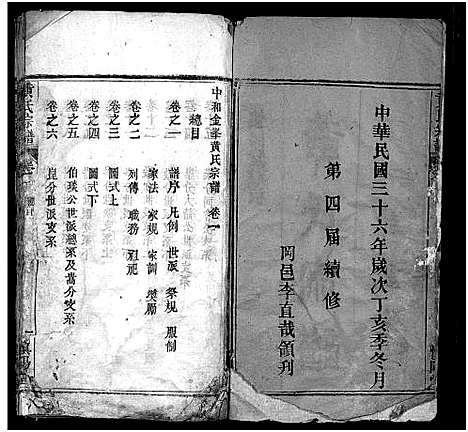 中華民國三十六年歲次丁亥季冬月
第四屆續修
岡邑李直哉領刊
中和金峯黃氏宗譜 卷一
總目
卷之一 譜序 凡例 世派 祭規 服制
家法 家規 家訓 獎勵
卷之二 列傳 職務 祖祀
卷之三 圖式上
卷之四 圖式下
卷之五 伯瑛公世派總系及嵩分世支系
卷之六 崑分世派支系
黃氏宗譜